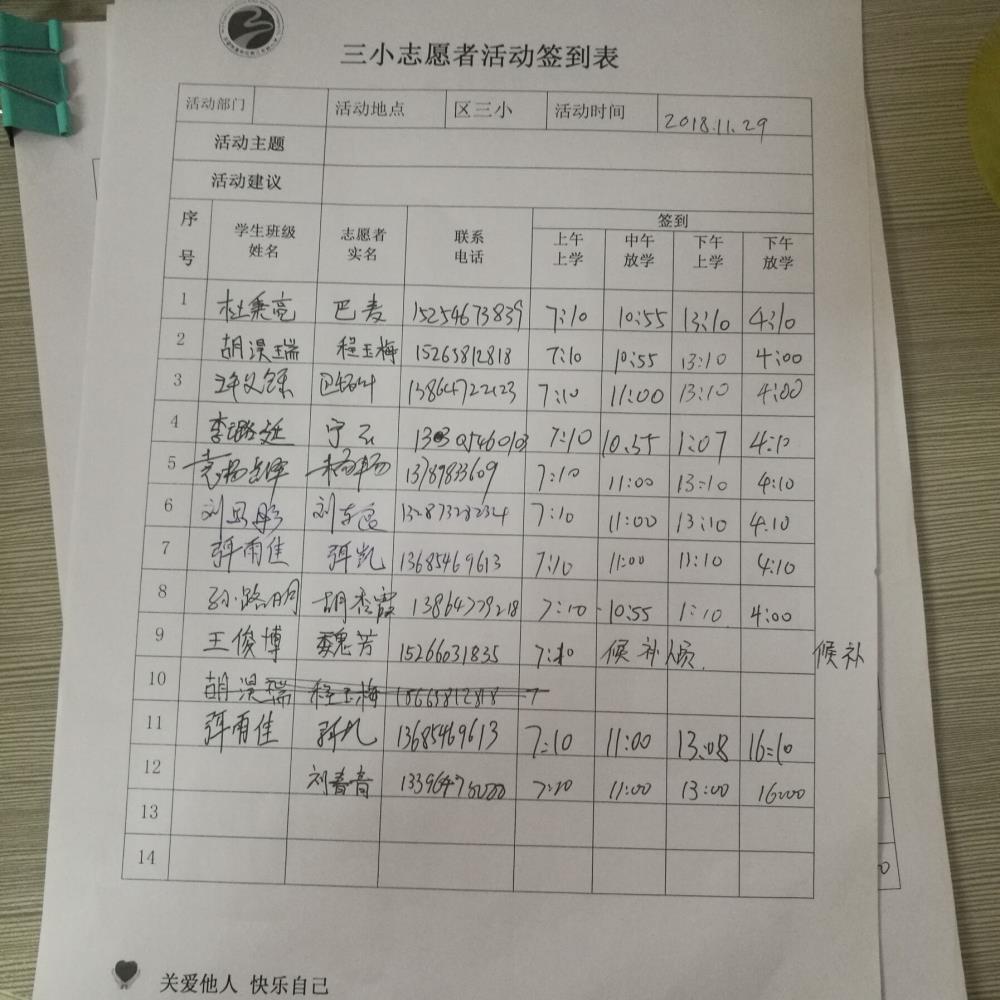 三小志愿者活动签到表
活动部门 活动地点 区三小 活动时间 2018.11.29
活动主题
活动建议
序号 学生班级姓名 志愿者实名 联系电话 签到
上午上学 中午放学 下午上学 下午放学
1 杜秉亮 巴麦 15254673839 7:10 10:55 13:10 4:10
2 胡淏瑞 程玉梅 15265812818 7:10 10:55 13:10 4:00
3 13864722123 7:10 11:00 13:10 4:00
4 李璐廷 7:10 10.55 1:07 4:10
5 13789833609 7:10 11:00 13:10 4:10
6 13287328234 7:10 11:00 13:10 4:10
7 张雨佳 张凯 13685469613 7:10 11:00 13:10 4:10
8 孙路明 胡秀霞 13864779218 7:10 10:55 1:10 4:00
9 王俊博 魏芳 15266031835 7:10 候补人员 候补
10 胡淏瑞 程玉梅 18665812818 7
11 张雨佳 张凡 13685469613 7:10 11:00 13:08 16:10
12 刘春音 7:10 11:00 13:00 16:00
13
14
关爱他人 快乐自己